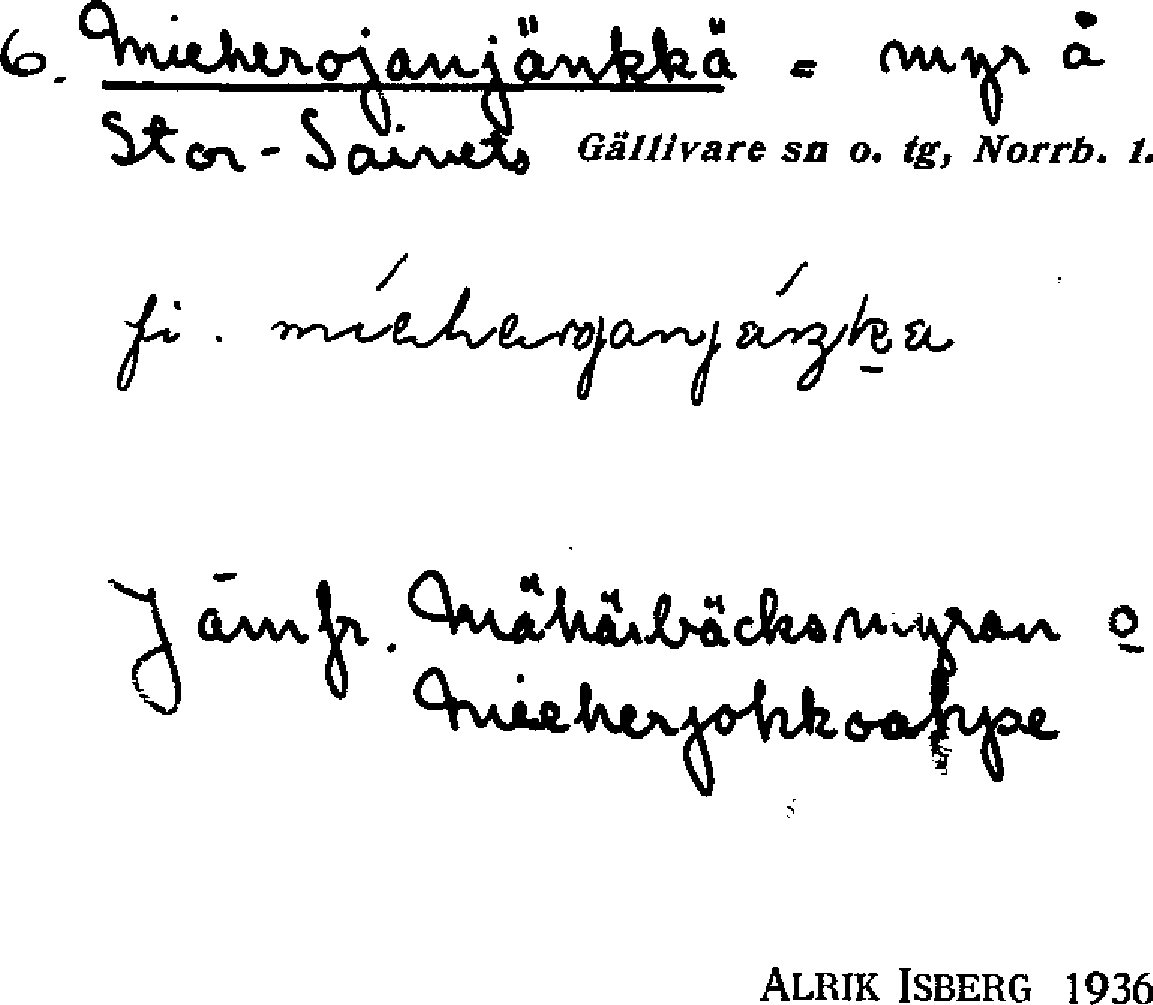 6. Mieherojanjänkkä = myr å
Stor-Saivets Gällivare sn o. tg, Norrb. l.
fi.
Jämfr. Mähärbäcksmyran o
Mieeherjohkoahpe
ALRIK ISBERG 1936